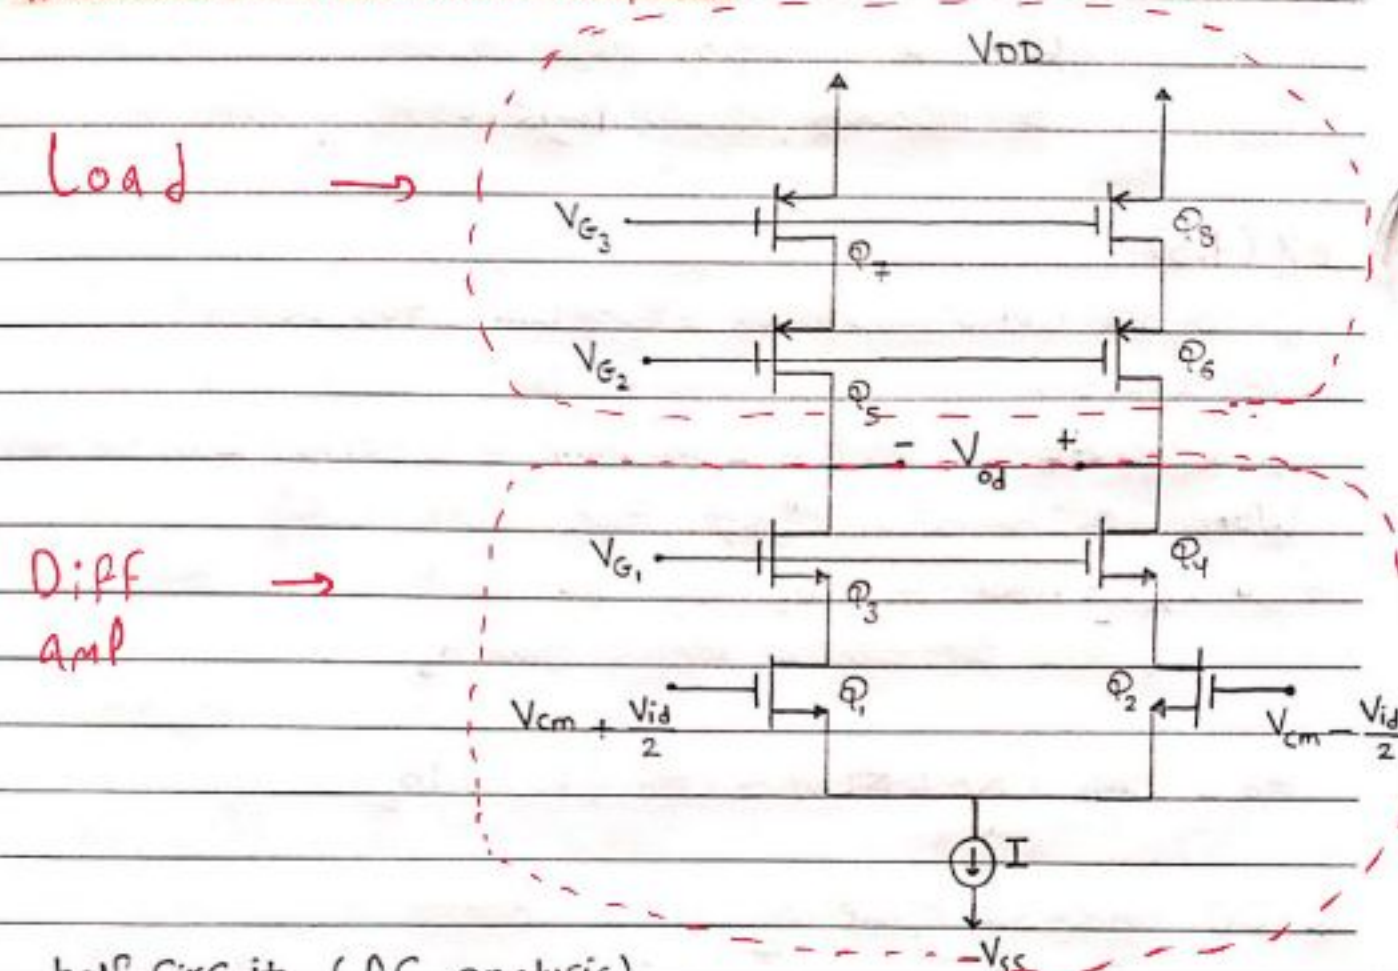 VDD
Load →
VG3
Q7
Q8
VG2
Q5
Q6
- Vod +
Diff
amp
→
VG1
Q3
Q4
Vcm + Vid/2
Q1
Q2
Vcm - Vid/2
I
-Vss
half circuit (AC analysis)